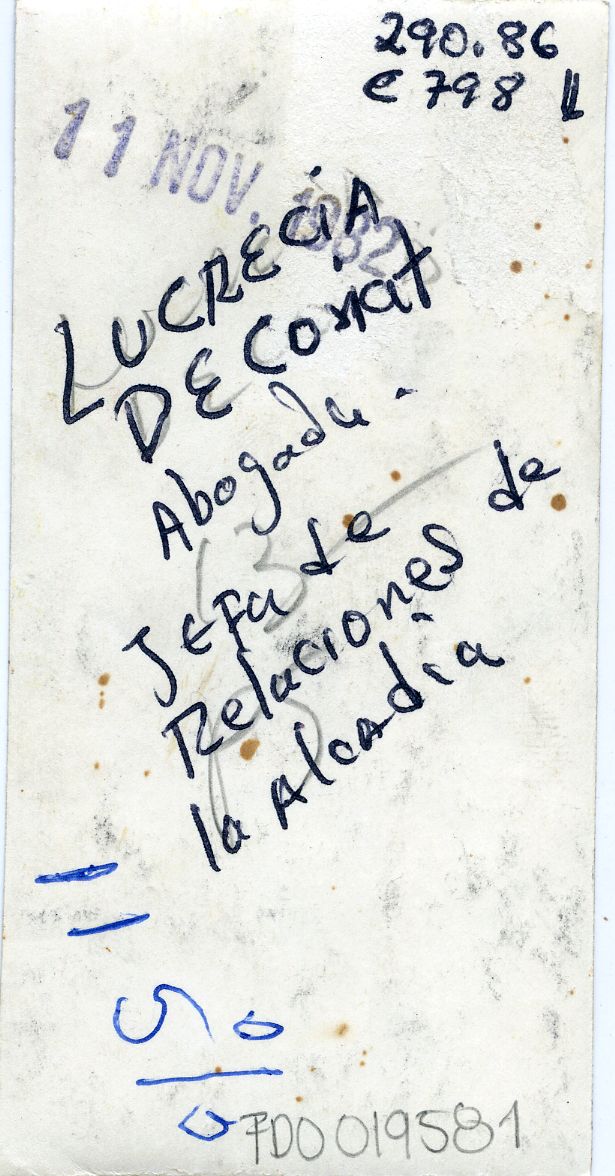 290.86
C798
11 NOV. 1982
LUCRECiA
DE Comat
Abogada.
JeFa de
Relaciones de
la Alcadia
50
FD0019581